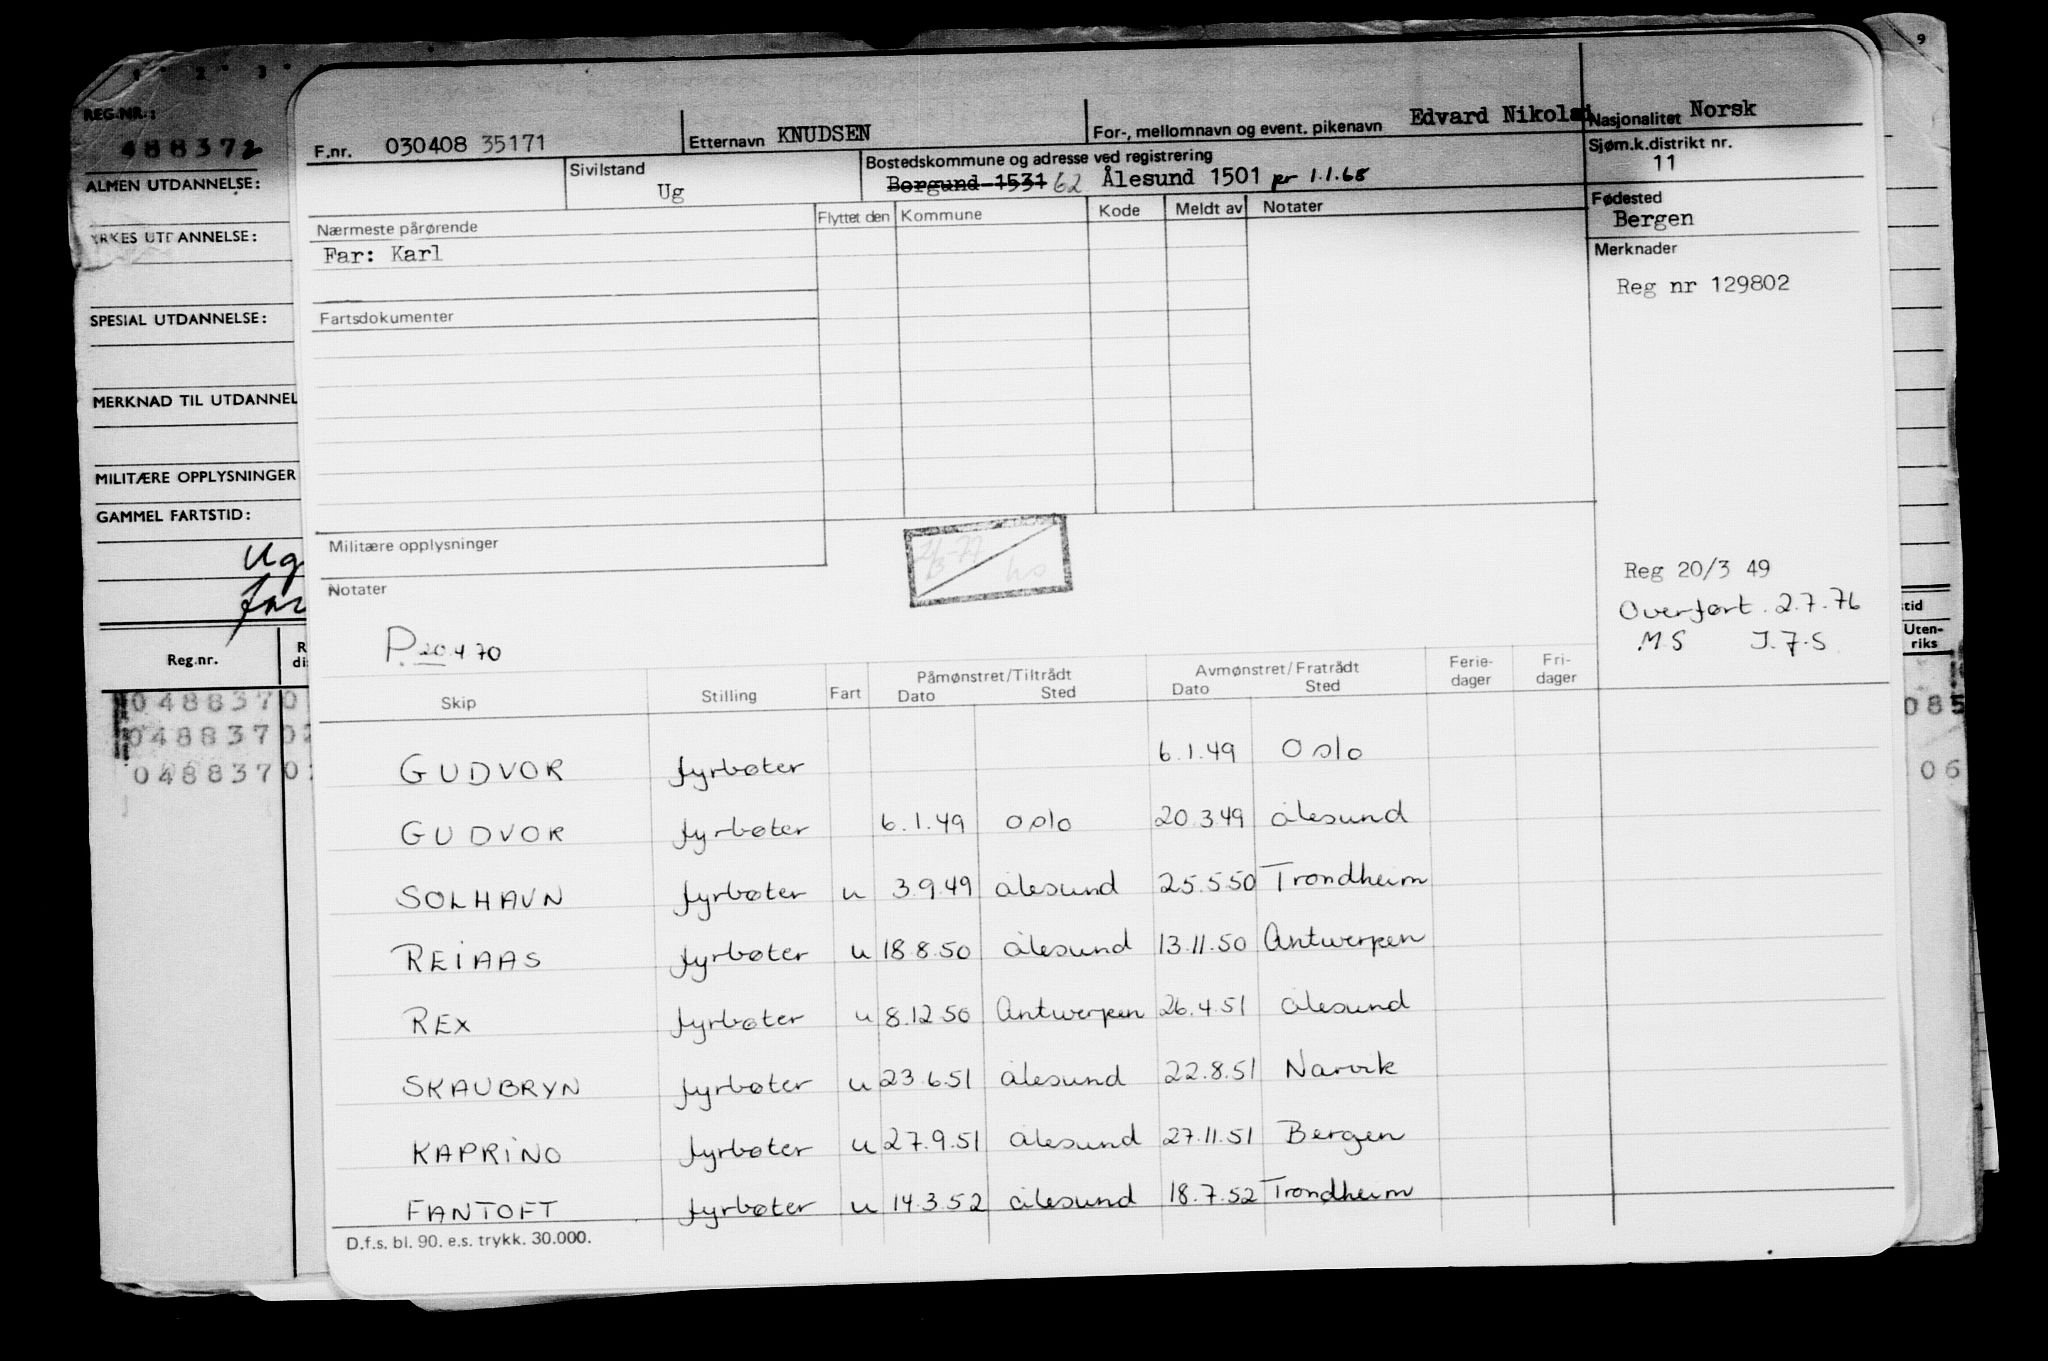 1 2 3
9
REG.NR.:
488372
ALMEN UTDANNELSE:
YRKES UTDANNELSE:
SPESIAL UTDANNELSE:
MERKNAD TIL UTDANNEL
MILITÆRE OPPLYSNINGER
GAMMEL FARTSTID:
Ug
far
Reg.nr.
R
di
0488370
0488370
0488370
F.nr. 030408 35171
Etternavn KNUDSEN
For-, mellomnavn og event. pikenavn Edvard Nikolai
Nasjonalitet Norsk
Sivilstand
Ug
Bostedskommune og adresse ved registrering
Borgund 1531 62 Ålesund 1501 pr 1.1.68
Sjøm.k.distrikt nr.
11
Fødested
Bergen
Merknader
Reg nr 129802
Reg 20/3 49
Overført. 2.7.76
M.S J.F.S.
Nærmeste pårørende
Far: Karl
Flyttet den Kommune Kode Meldt av Notater
Fartsdokumenter
Militære opplysninger
Notater
P. 20.4 70
Skip Stilling Fart Påmønstret/Tiltrådt Avmønstret/Fratrådt Ferie- Fri-
Dato Sted Dato Sted dager dager
GUDVOR fyrbøter 6.1.49 Oslo
GUDVOR fyrbøter 6.1.49 oslo 20.3.49 ålesund
SOLHAVN fyrbøter u 3.9.49 ålesund 25.5.50 Trondheim
REIAAS fyrbøter u 18.8.50 ålesund 13.11.50 Antwerpen
REX fyrbøter u 8.12.50 Antwerpen 26.4.51 ålesund
SKAUBRYN fyrbøter u 23.6.51 ålesund 22.8.51 Narvik
KAPRINO fyrbøter u 27.9.51 ålesund 27.11.51 Bergen
FANTOFT fyrbøter u 14.3.52 ålesund 18.7.52 Trondheim
D.f.s. bl. 90. e.s. trykk. 30.000.
tid
Uten-
riks
085
06